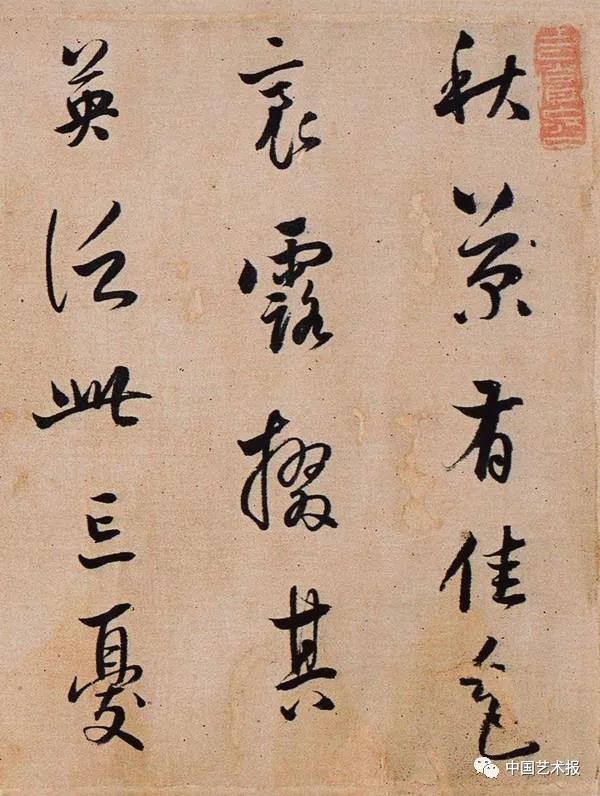 秋菊有佳色
裛露掇其
英泛此忘憂
中国艺术报